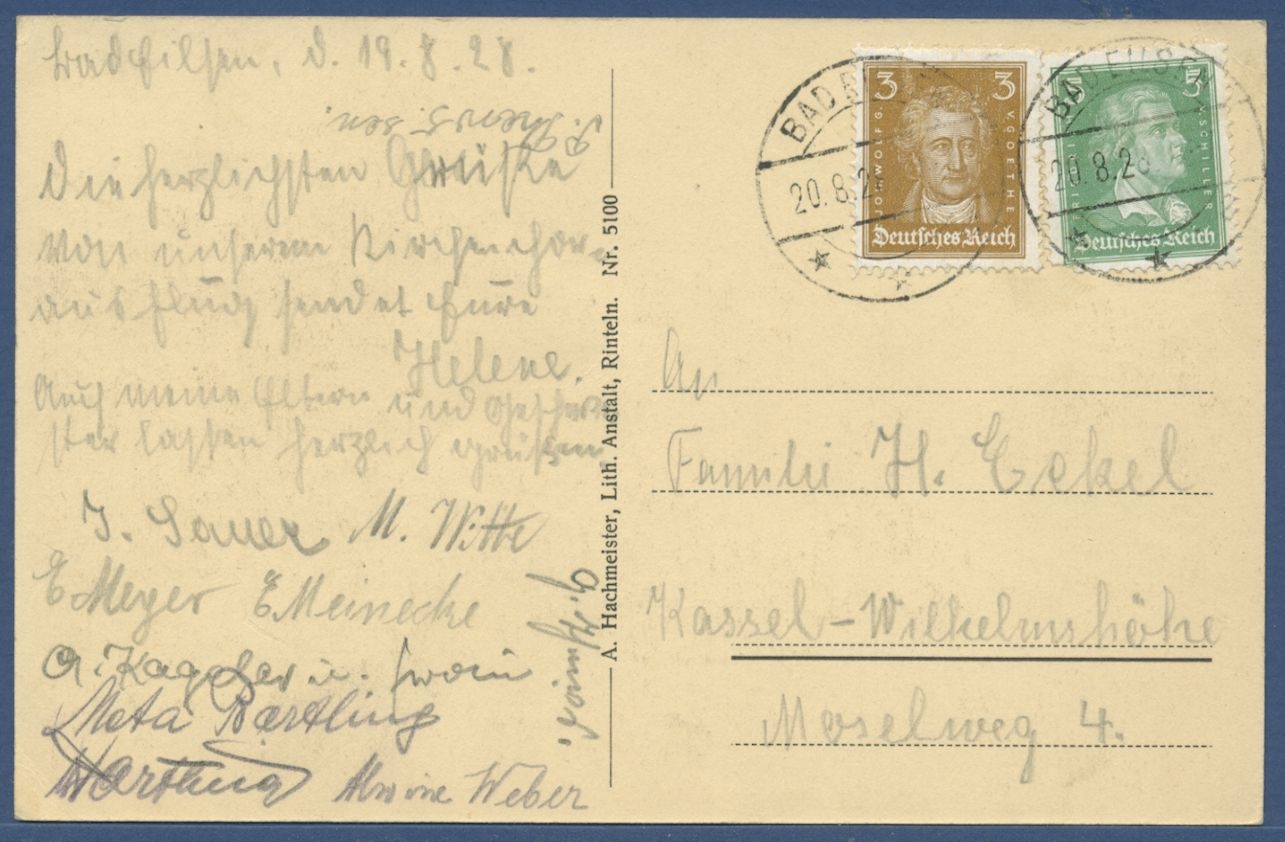 Bad Eilsen, d. 19.8.28.
Die herzlichsten Grüße
von unserem Kirchenchor-
ausflug sendet Eure
Helene.
Auch meine Eltern und Geschwi-
ster lassen herzlich grüßen
J. Sauer M. Witte
E Meyer E Meinecke
u. Frau
Meta Bartling
Alwine Weber
A. Hachmeister, Lith. Anstalt, Rinteln. Nr. 5100
3 3
JOH. WOLFG. V. GOETHE
Deutsches Reich
5
SCHILLER
Deutsches Reich
BAD EILSEN
20.8.28
BAD EILSEN
20.8.28
An
Familie H. Eckel
Kassel-Wilhelmshöhe
Moselweg 4.